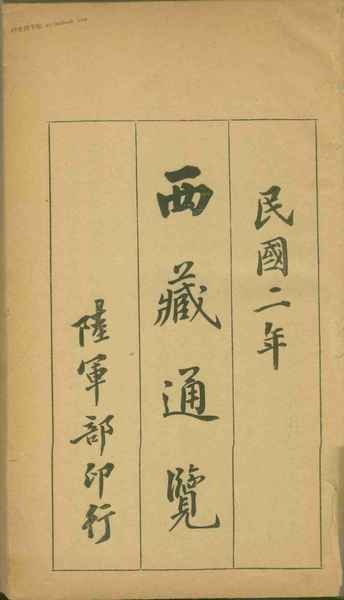 民國二年
西藏通覽
陸軍部印行